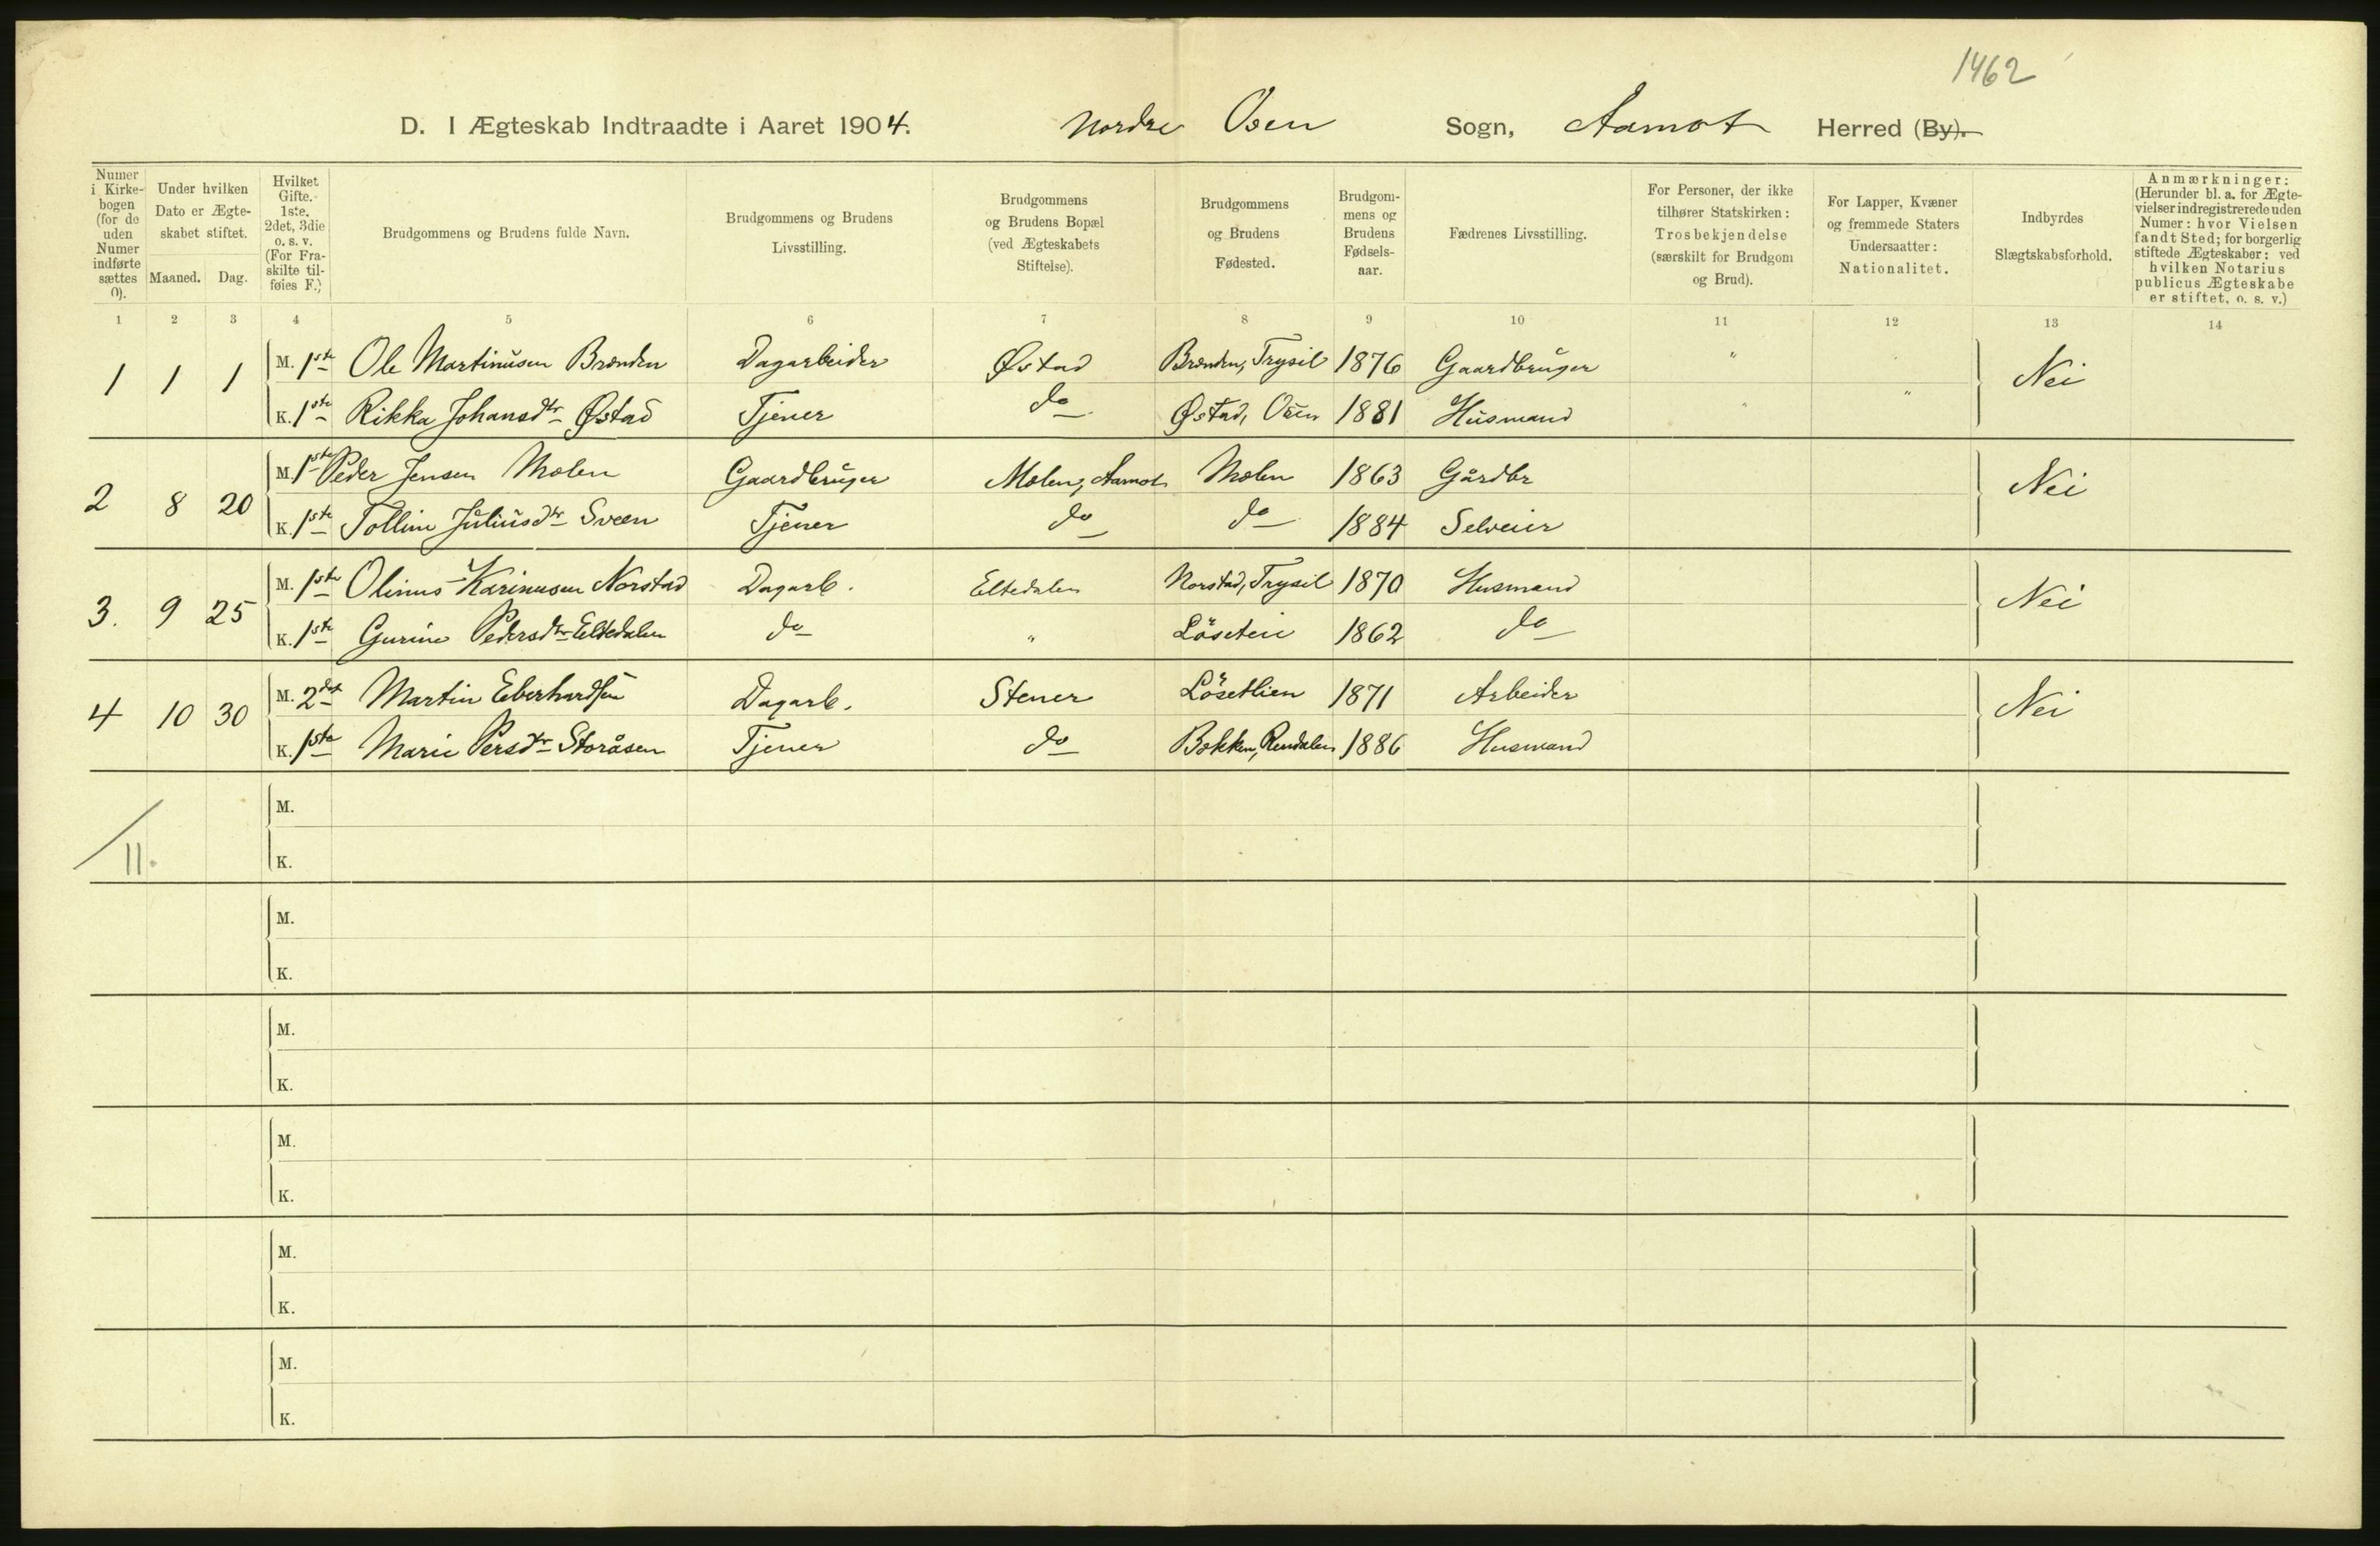 1462
D. I Ægteskab Indtraadte i Aaret 1904. Nordre Osen Sogn, Aamot Herred (By).
Numer i Kirkebogen (for de uden Numer indførte sættes 0).
Under hvilken Dato er Ægteskabet stiftet.
Maaned. Dag.
Hvilket Gifte. 1ste, 2det, 3die o. s. v. (For Fraskilte tilføies F.)
Brudgommens og Brudens fulde Navn.
Brudgommens og Brudens Livsstilling.
Brudgommens og Brudens Bopæl (ved Ægteskabets Stiftelse).
Brudgommens og Brudens Fødested.
Brudgommens og Brudens Fødselsaar.
Fædrenes Livsstilling.
For Personer, der ikke tilhører Statskirken: Trosbekjendelse (særskilt for Brudgom og Brud).
For Lapper, Kvæner og fremmede Staters Undersaatter: Nationalitet.
Indbyrdes Slægtskabsforhold.
Anmærkninger: (Herunder bl. a. for Ægtevielser indregistrerede uden Numer: hvor Vielsen fandt Sted; for borgerlig stiftede Ægteskaber: ved hvilken Notarius publicus Ægteskabe er stiftet, o. s. v.)
1 2 3 4 5 6 7 8 9 10 11 12 13 14
1 1 1 M. 1ste Ole Martinusen Brænden Dagarbeider Østad Brænden, Trysil 1876 Gaardbruger " " Nei
K. 1ste Rikka Johansdtr Østad Tjener do Østad, Osen 1881 Husmand " "
2 8 20 M. 1ste Peder Jensen Molen Gaardbruger Moleng, Aamot Molen 1863 Gårdbr Nei
K. 1ste Tolline Juliusdtr Sveen Tjener do do 1884 Selveier
3. 9 25 M. 1ste Olinus Karinusen Norstad Dagarb. Eltedalen Norstad, Trysil 1870 Husmand Nei
K. 1ste Gurine Pedersdtr Eltedalen do " Löseten 1862 do
4 10 30 M. 2det Martin Eberhardsen Dagarb. Stener Lösetlien 1871 Arbeider Nei
K. 1ste Marie Persdtr Storåsen Tjener do Bækken, Rendalen 1886 Husmand
M.
II.
K.
M.
K.
M.
K.
M.
K.
M.
K.
M.
K.